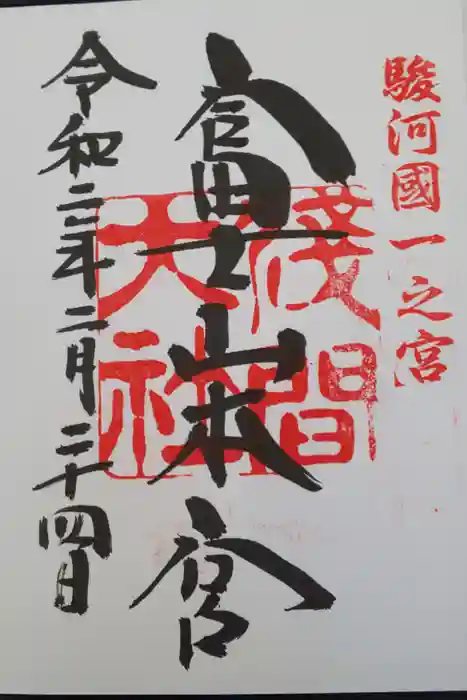 駿河國一之宮
富士山本宮
淺間
大社
令和三年二月二十四日